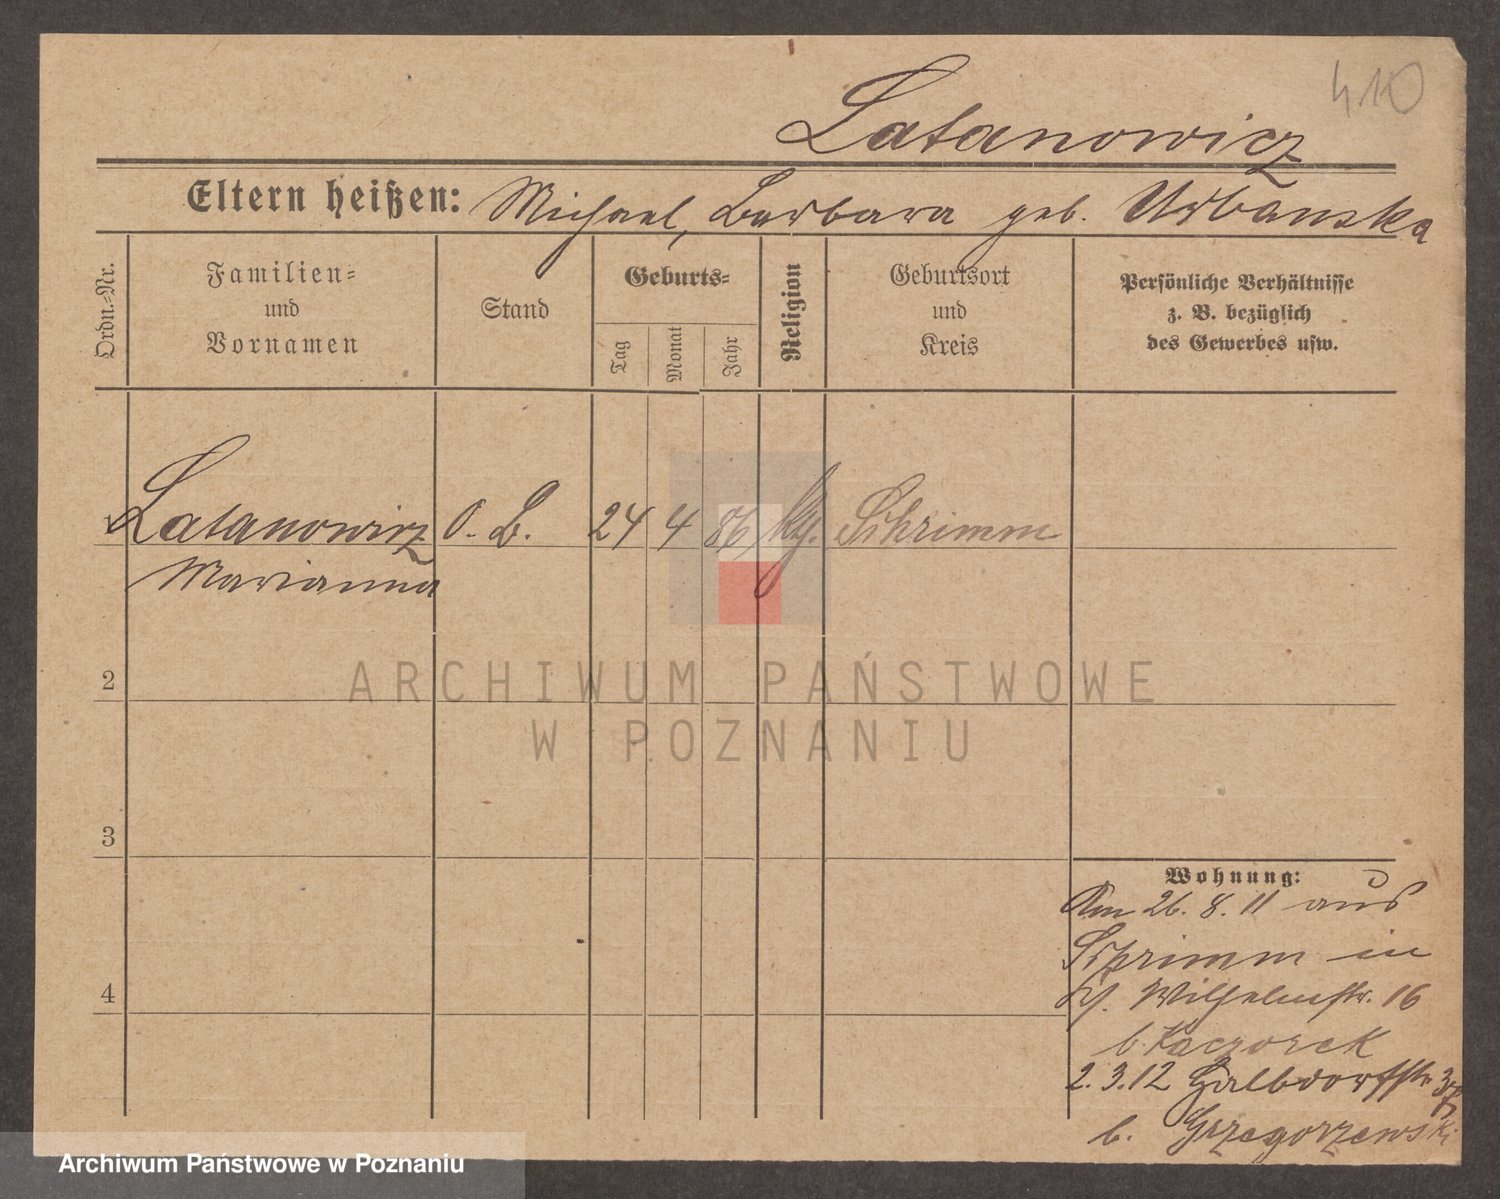 410
Latanowicz
Eltern heißen: Michael, Barbara geb. Urbanska
Ordn.=Nr.
Familien=
und
Vornamen
Stand
Geburts=
Tag
Monat
Jahr
Religion
Geburtsort
und
Kreis
Persönliche Verhältnisse
z. B. bezüglich
des Gewerbes usw.
Latanowicz O. B. 24 4 86 kg. Schrimm
Marianna
2
3
4
Wohnung:
Am 26. 8. 11 aus
Schrimm in
Wilhelmstr. 16
b. Kaczorek
2. 3. 12 Halbdorfstr.
b. Grzegorzewski
ARCHIWUM PAŃSTWOWE
W POZNANIU
Archiwum Państwowe w Poznaniu